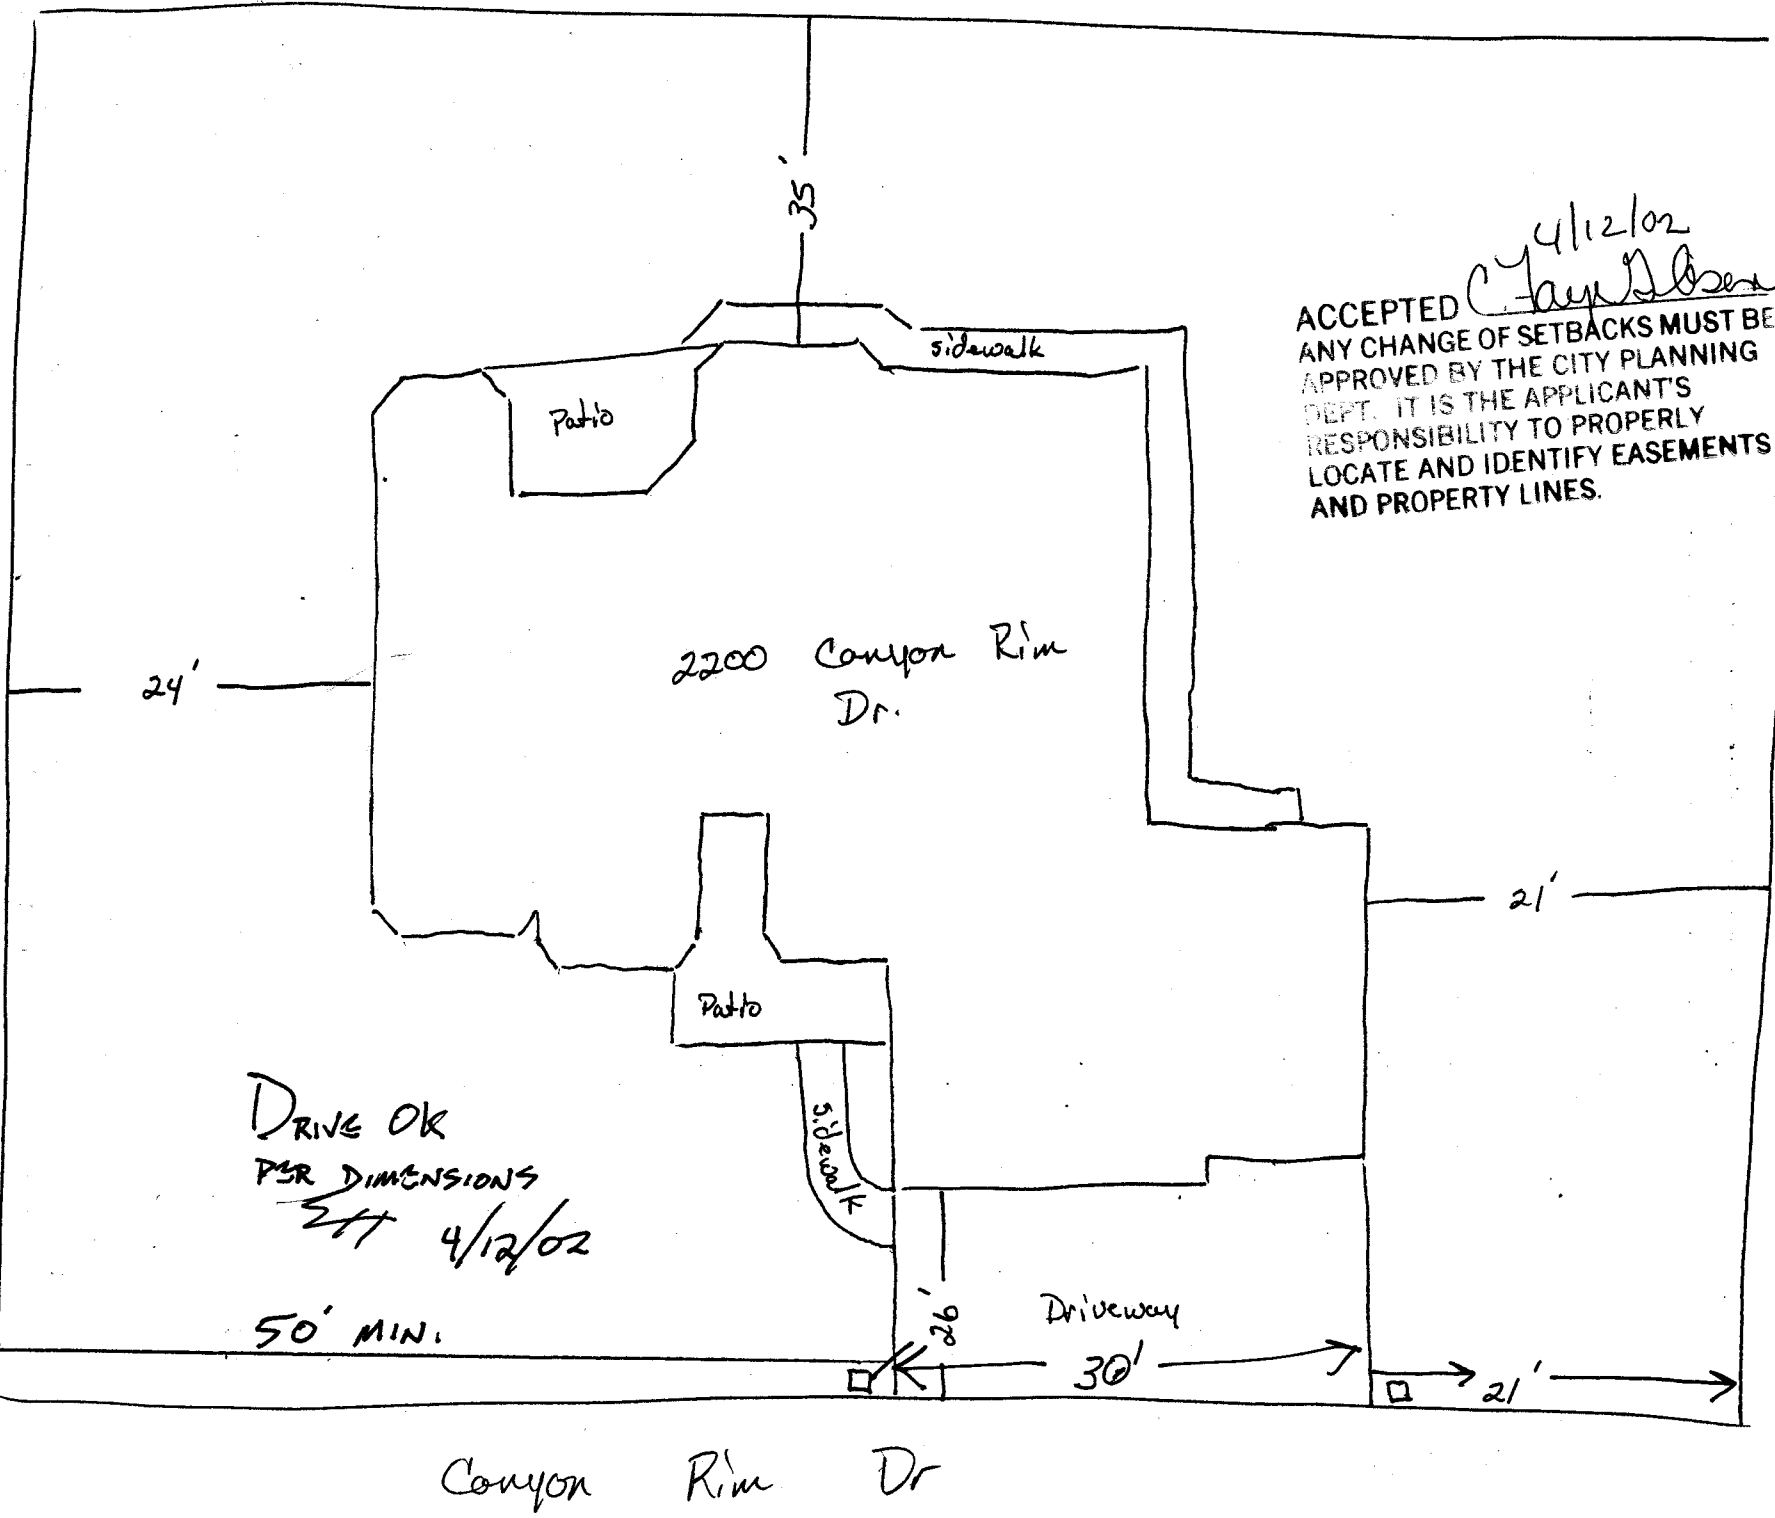 35'
4/12/02
ACCEPTED C. Faye Gibson
ANY CHANGE OF SETBACKS MUST BE
APPROVED BY THE CITY PLANNING
DEPT. IT IS THE APPLICANT'S
RESPONSIBILITY TO PROPERLY
LOCATE AND IDENTIFY EASEMENTS
AND PROPERTY LINES.
sidewalk
Patio
2200 Canyon Rim
Dr.
24'
21'
Patio
sidewalk
DRIVE OK
PER DIMENSIONS
4/12/02
50' MIN.
26'
Driveway
30'
21'
Canyon Rim Dr